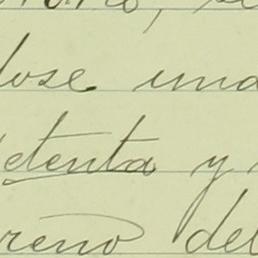 dose una
setenta y
reno del